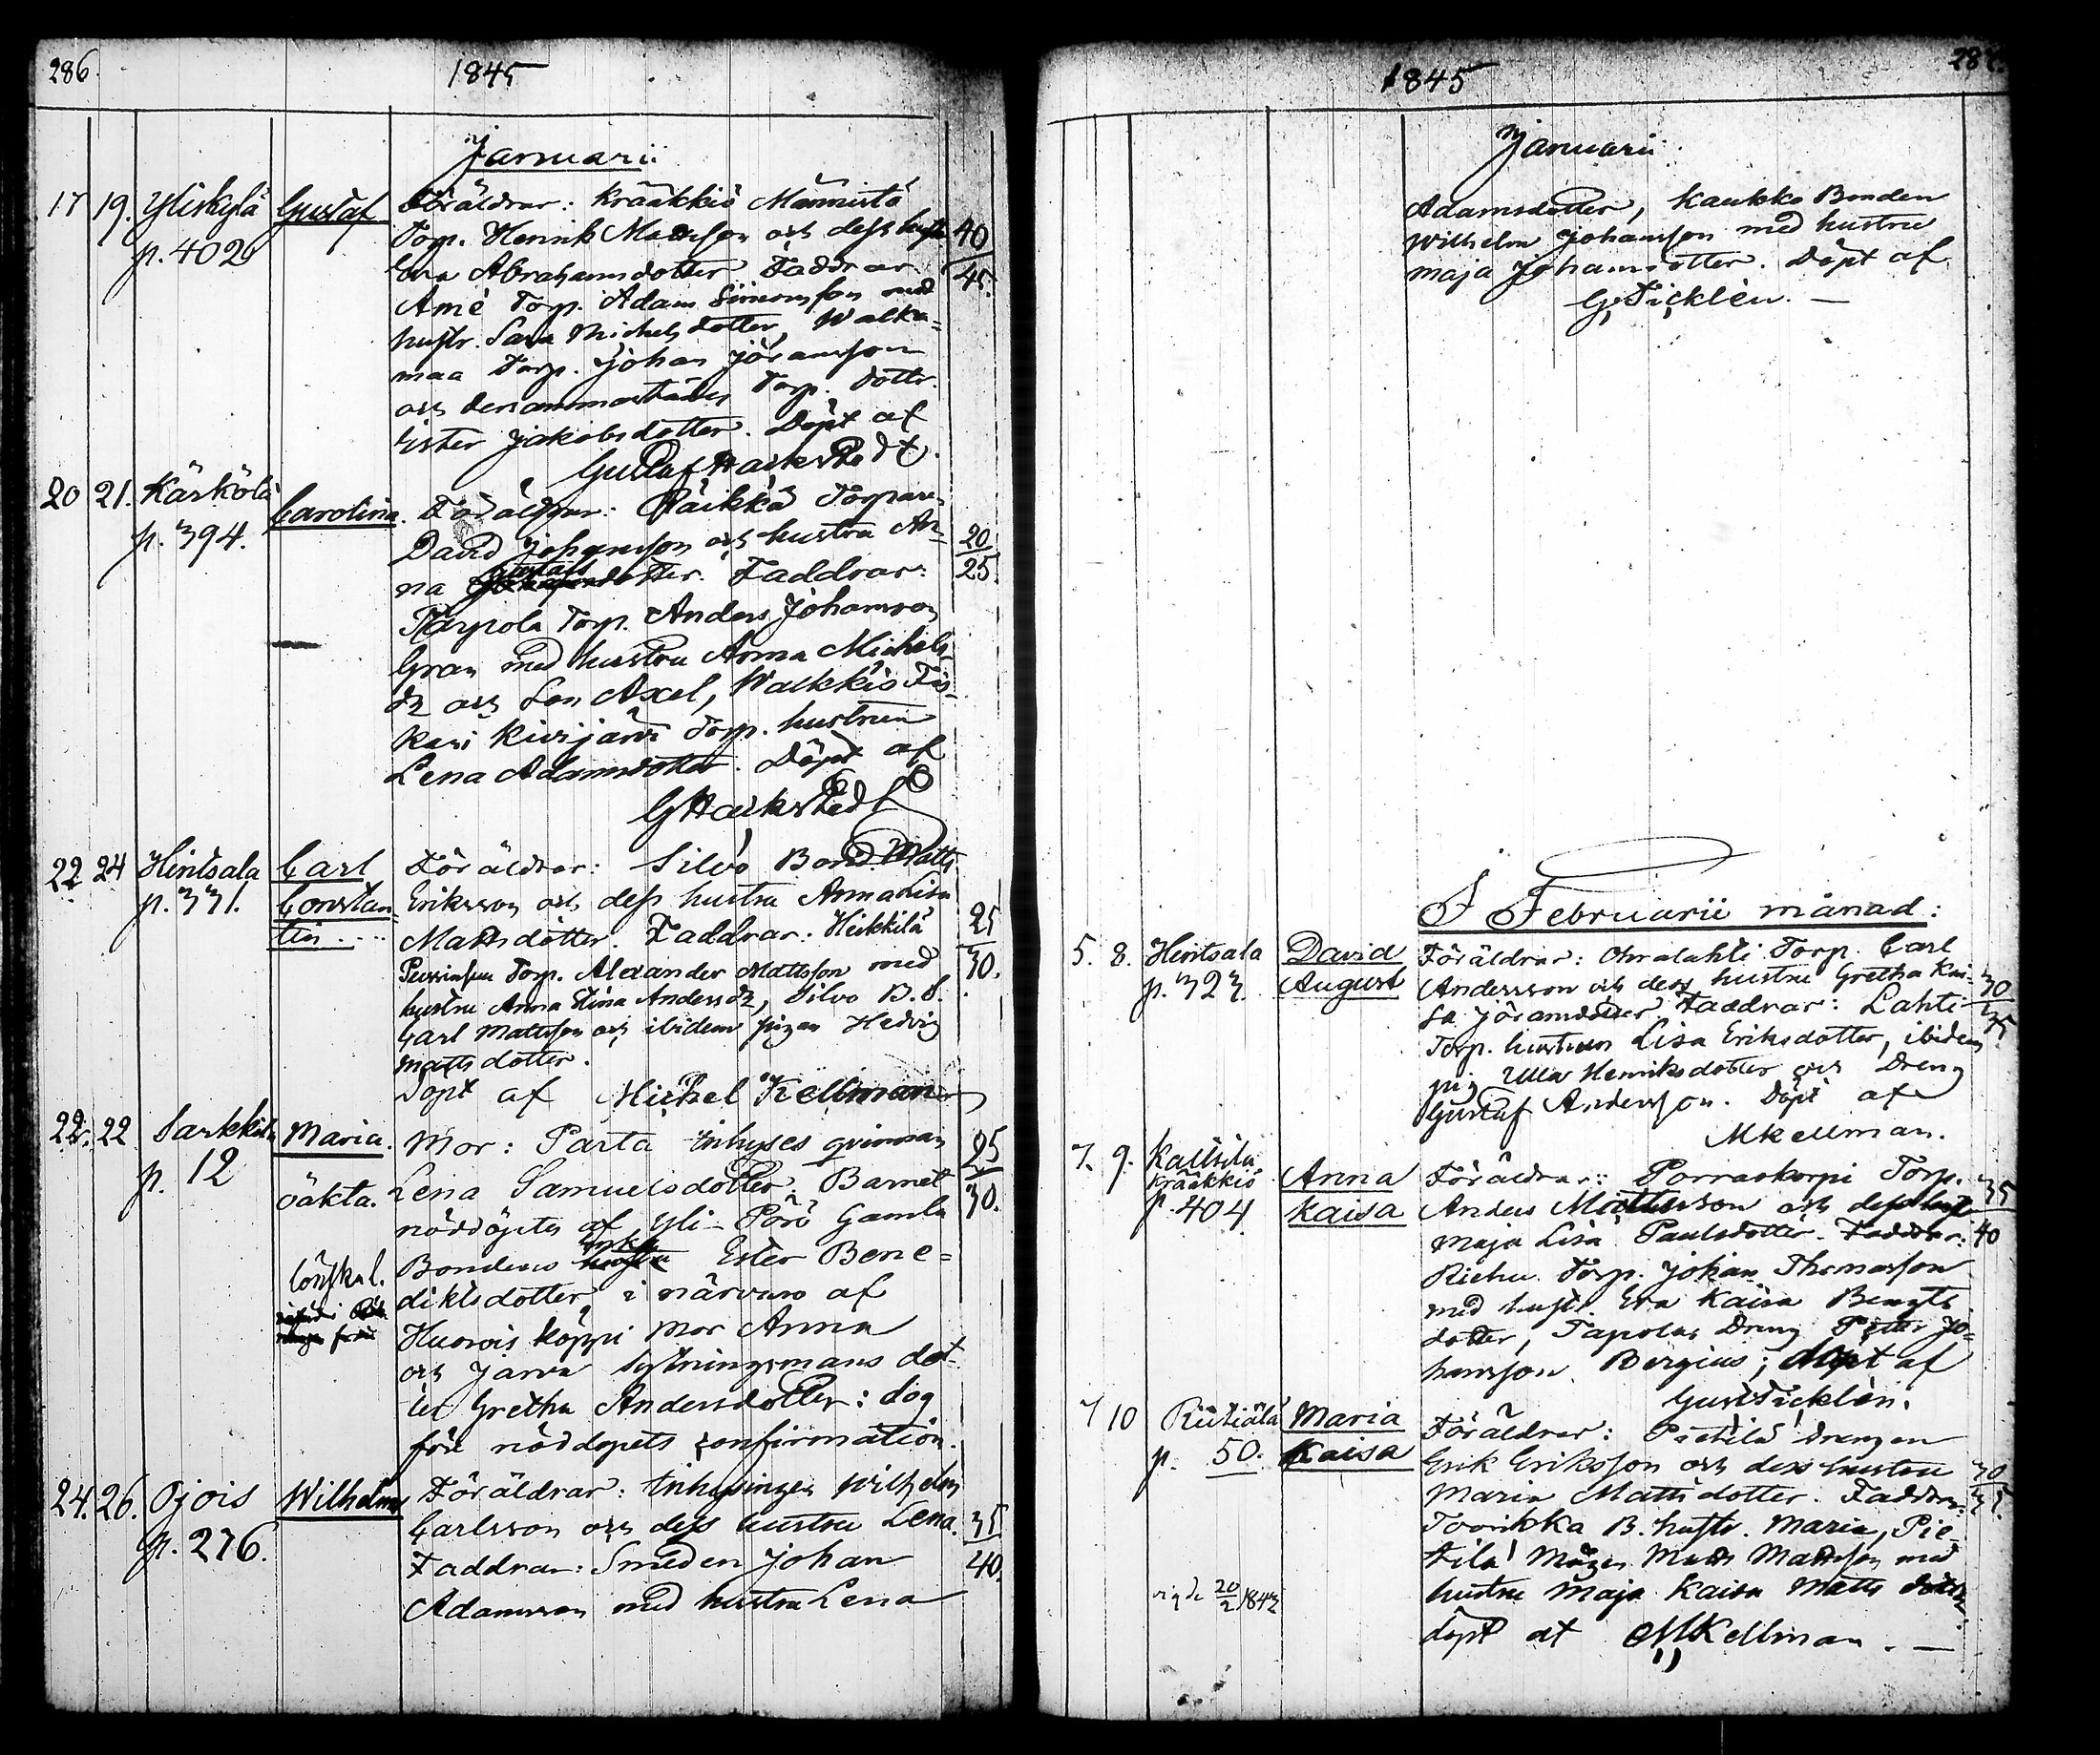 286.
1845
Januarii
17 19. Yliskylä Gustaf Föräldrar: Krääkkiö Männistö
p. 402 Torp. Henrik Mattsson och dess hustr 40
Eva Abrahamsdotter. Faddrar: 45.
Ame Torp. Adam Simonsson med
hustr. Sara Michelsdotter, Walka-
maa Torp. Johan Jöransson
och densammastädes Torp. dottr.
Ester Jakobsdotter. Döpt af
Gustaf Hackstedt.
20 21. Kärkölä Carolina. Föräldrar: Räikkä Torparen
p. 394. David Johansson och hustru An- 20
na Gustafsdotter. Faddrar: 25.
Torp. Anders Johansson
Gran med hustru Anna Michels
dr och Son Axel, Walkkis Fis-
kari Kivijärvi Torp. hustrun
Lena Adamsdotter. Döpt af
G Hackstedt
22 24 Hintsala Carl Föräldrar: Silvo Bond. Matts
p. 331. Constan- Eriksson och dess hustru Anna Lisa 25
tin Mattsdotter. Faddrar: Heikkilä 30.
Torp. Alexander Mattsson med
hustru Anna Stina Andersdr, Silvo B. S.
Carl Mattsson och ibidem pigan Hedvig
Mattsdotter.
Döpt af Michel Kellman
22. 22 Sarkkila Maria. Mor: Parta Inhyses qvinnan 25
p. 12 oäkta. Lena Samuelsdotter. Barnet 30.
nöddöptes af Yli-Pöri Gamla
Bondens Enka Ester Bene-
löskal. diktsdotter i närvaro af
Huovis köppi Mor Anna
och Jarva Sytningsmans dot-
ter Gretha Andersdotter: dog
före nöddopets confirmation.
24. 26. Ojois Wilhelm Föräldrar: Inhysingen Wilhelm
p. 276. Carlsson och dess hustru Lena. 35
Faddrar: Smeden Johan 40.
Adamsson med hustru Lena
1845
Januarii
Adamsdotter, Kaukko Bonden
Wilhelm Johansson med hustru
Maja Johansdotter. Döpt af
G. Ticklén. —
I Februarii månad:
5. 8. Hintsala David Föräldrar: Ohralahti Torp. Carl
p. 323 August Andersson och dess hustru Gretha Kai- 30
sa Jöransdotter. Faddrar: Lahti 35
Torp. hustrun Lisa Eriksdotter, ibidem
pig Ulla Henriksdotter och Dreng
Gustaf Andersson. Döpt af
MKellman.
7. 9. Kallsila Anna Föräldrar: Porraskorpi Torp. 35
Krääkkiö Kaisa Anders Mattsson och dess hust 40
p. 404 Maja Lisa Paulsdotter. Faddrar:
Torp. Johan Thomasson
med hustr. Eva Kaisa Bengts
dotter, Tapolas Dreng Petter Jo-
hansson Bergius; döpt af
Gust Ticklén.
7 10 Riihiälä Maria Föräldrar: Pietilä drengen
p. 50. Kaisa Erik Eriksson och dess hustru 30
Maria Mattsdotter. Faddrar: 35.
Toorikka B. hustr. Maria, Pie-
tilä Mågen Matts Mattsson med
hustru Maja Kaisa Matts dotter.
20/2 1843
döpt af MKellman. —